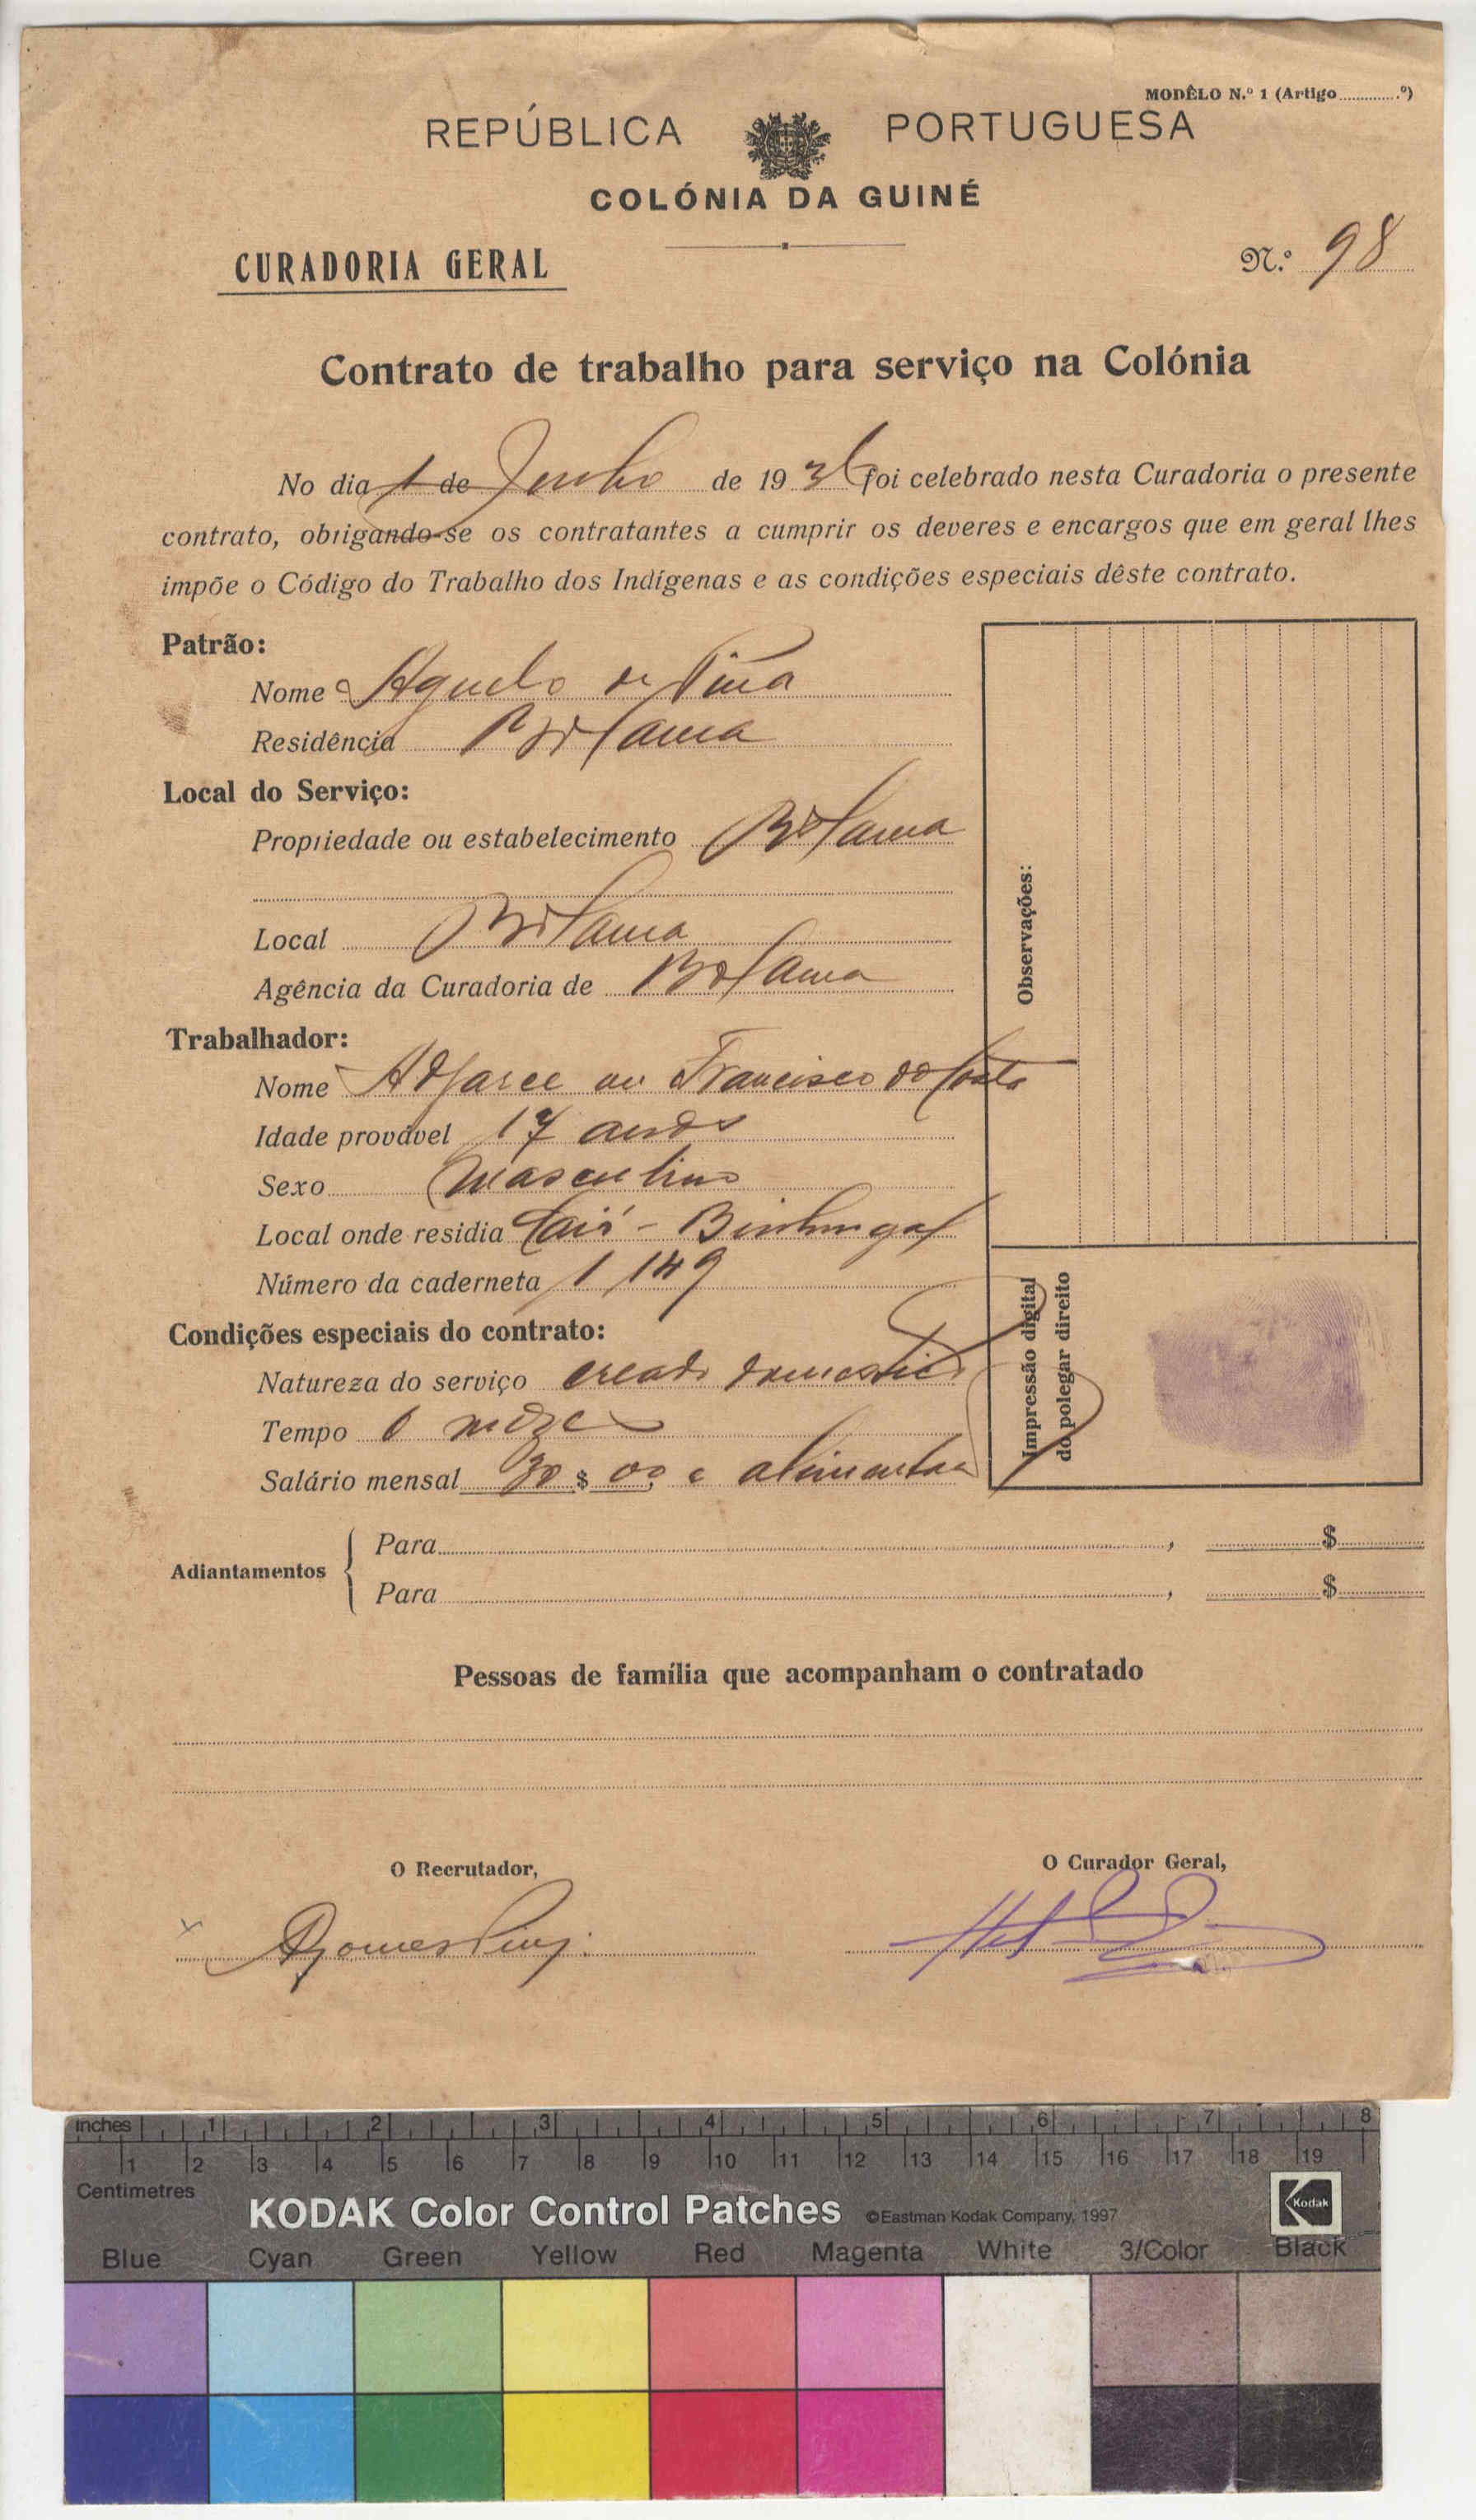 MODÊLO N.º 1 (Artigo .............º)
REPÚBLICA PORTUGUESA
COLÓNIA DA GUINÉ
CURADORIA GERAL
N.º 98
Contrato de trabalho para serviço na Colónia
No dia 1 de Junho de 1936 foi celebrado nesta Curadoria o presente
contrato, obrigando-se os contratantes a cumprir os deveres e encargos que em geral lhes
impõe o Código do Trabalho dos Indígenas e as condições especiais dêste contrato.
Patrão:
Nome de Pina
Residência Bolama
Local do Serviço:
Propriedade ou estabelecimento Bolama
Local Bolama
Agência da Curadoria de Bolama
Trabalhador:
Nome ou Francisco da Costa
Idade provável 17 anos
Sexo Masculino
Local onde residia
Número da caderneta 1149
Condições especiais do contrato:
Natureza do serviço creado domestico
Tempo 6 mezes
Salário mensal 30 $ 00 e alimentação
Observações:
Impressão digital
do polegar direito
Adiantamentos
Para , $
Para , $
Pessoas de família que acompanham o contratado
O Recrutador,
O Curador Geral,
inches 1 2 3 4 5 6 7 8
1 2 3 4 5 6 7 8 9 10 11 12 13 14 15 16 17 18 19
Centimetres
KODAK Color Control Patches ©Eastman Kodak Company, 1997
Kodak
Blue Cyan Green Yellow Red Magenta White 3/Color Black